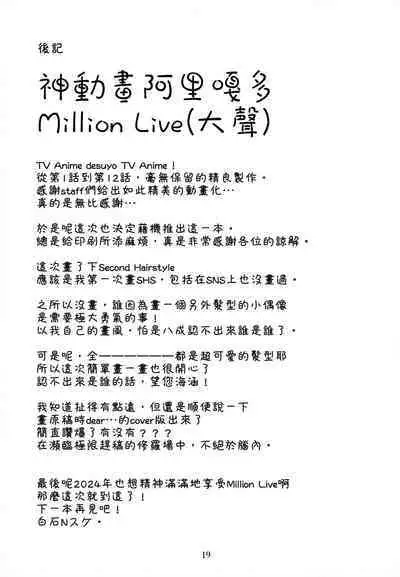 後記
神動畫阿里嘎多
Million Live(大聲)
TV Anime desuyo TV Anime！
從第1話到第12話，毫無保留的精良製作。
感謝staff們給出如此精美的動畫化…
真的是無比感謝…
於是呢這次也決定藉機推出這一本。
總是給印刷所添麻煩，真是非常感謝各位的諒解。
這次畫了下Second Hairstyle
應該是我第一次畫SHS，包括在SNS上也沒畫過。
之所以沒畫，誰因為畫一個另外髮型的小偶像
是需要極大勇氣的事！
以我自己的畫風，怕是八成認不出來誰是誰了。
可是呢，全——————都是超可愛的髮型耶
所以這次簡單畫一畫也很開心了
認不出來是誰的話，望您海涵！
我知道扯得有點遠，但還是順便說一下
畫原稿時dear…的cover版出來了
簡直讚爆了有沒有？？？
在瀕臨極限趕稿的修羅場中，不絕於腦內。
最後呢2024年也想精神滿滿地享受Million Live啊
那麼這次就到這了！
下一本再見吧！
白石Nスケ。
19